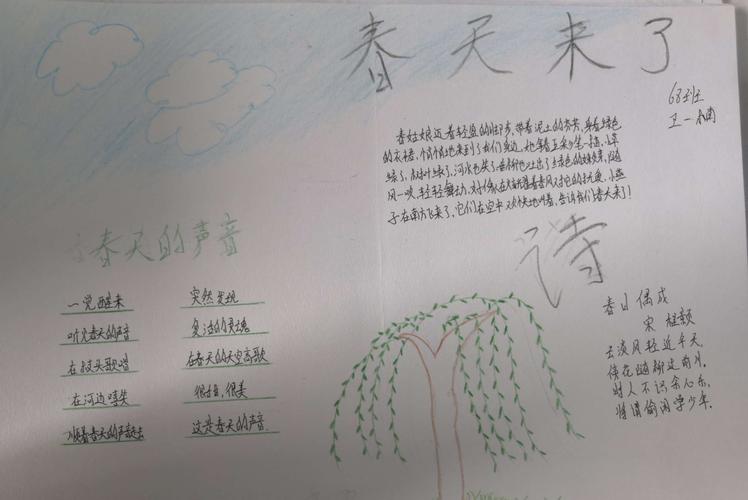 春天来了
68班
卫一
春姑娘迈着轻盈的脚步,带着泥土的芬芳,身着绿色
的衣裙,悄悄地来到了我们身边,她拿着五彩笔一描,小草
绿了,树叶绿了,河水也笑了,垂柳也上出了绿色的,随
风一吹,轻轻舞动,对像在着春风对它的抚爱,小燕
子在南方飞来了,它们在空中欢快地叫着,告诉我们春天来了!
春天的声音
一觉醒来
听见春天的声音
在枝头歌唱
在河边嘻笑
顺着春天的声音走去
突然发现
复活的灵魂
在春天的天空高歌
很自,很美
这是春天的声音
诗
春日偶成
宋 程颢
云淡风轻近午天,
傍花随柳过前川。
时人不识余心乐,
将谓偷闲学少年.